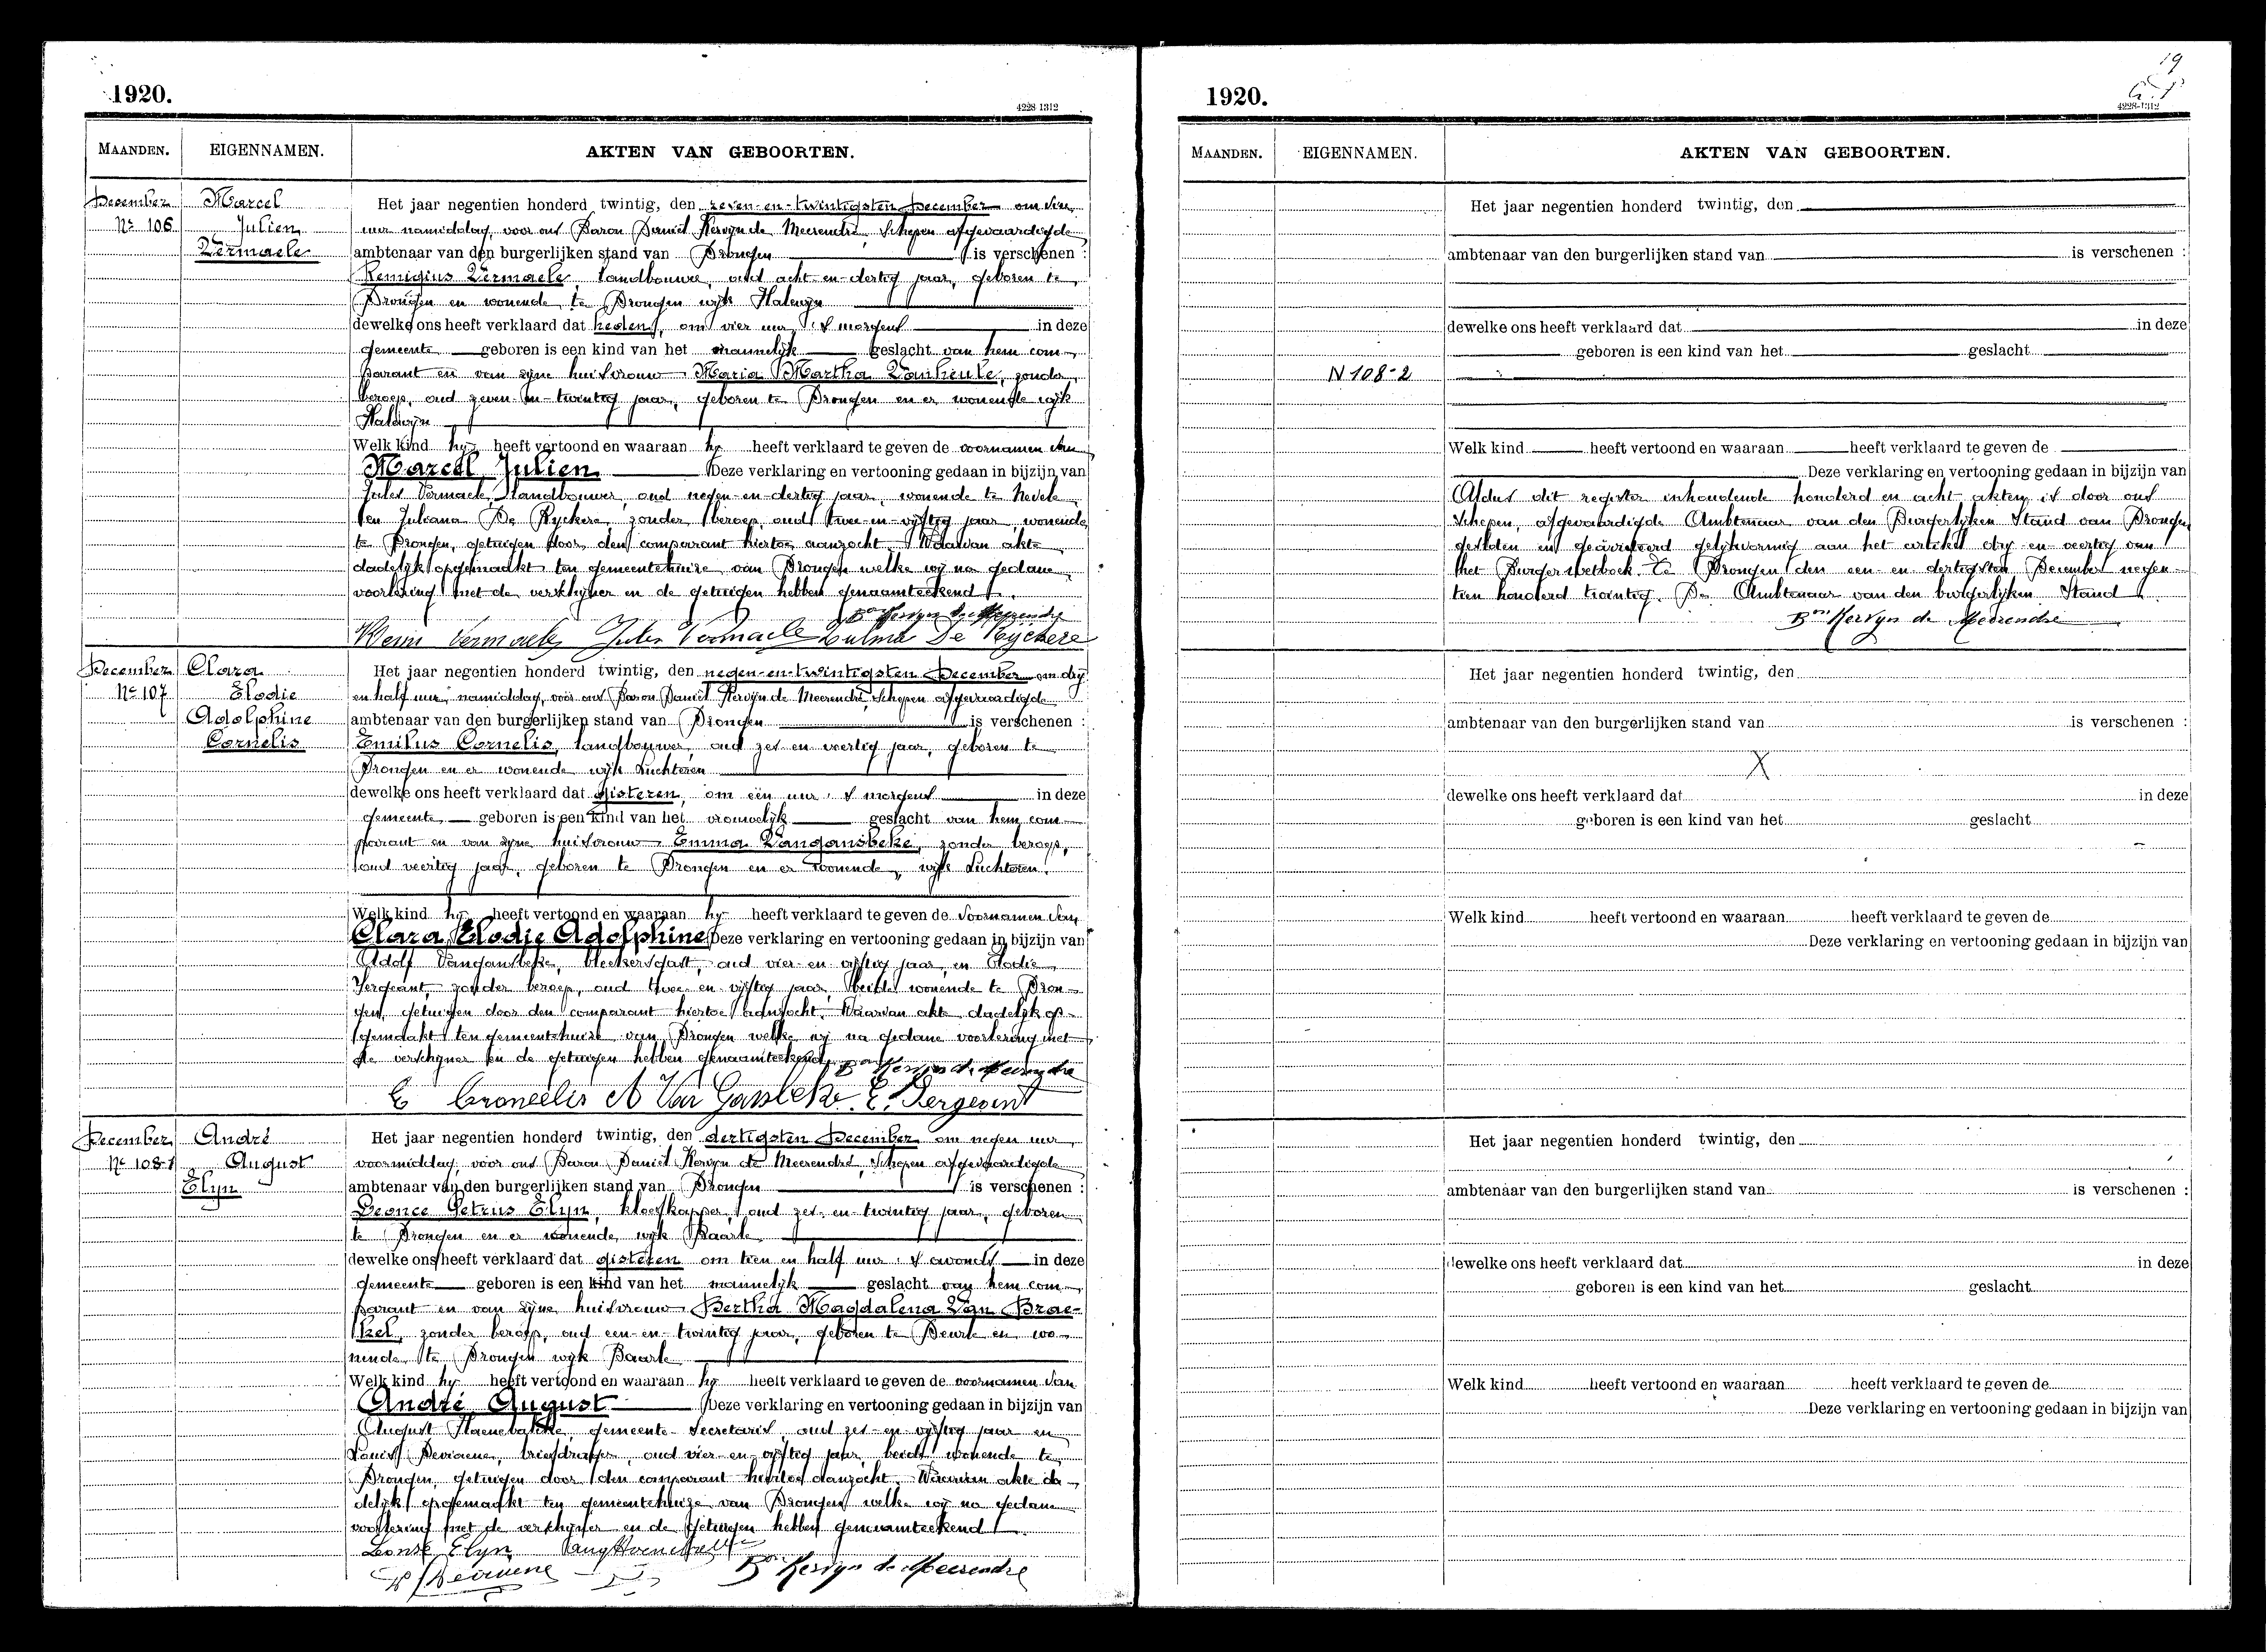 1920.
4228-1312
MAANDEN.
EIGENNAMEN.
AKTEN VAN GEBOORTEN.
December
No 106
Marcel
Julien
Vermaele
Het jaar negentien honderd twintig, den zeven-en-twintigsten December om een
uur namiddag, voor ons Baron Daniël Kervyn de Meerendré, Schepen afgevaardigde
ambtenaar van den burgerlijken stand van Drongen is verschenen :
Remigius Vermaele, landbouwer, oud acht-en-dertig jaar, geboren te
Drongen en wonende te Drongen wijk Halewijn
dewelke ons heeft verklaard dat heden, om vier uur 's morgens in deze
gemeente geboren is een kind van het mannelijk geslacht van hem com-
parant en van zijne huisvrouw Maria Martha Vanheule, zonder
beroep, oud zeven-en-twintig jaar, geboren te Drongen en er wonende wijk
Halewijn
Welk kind hij heeft vertoond en waaraan hij heeft verklaard te geven de voornamen van
Marcel Julien Deze verklaring en vertooning gedaan in bijzijn van
Jules Vermaele, landbouwer, oud negen-en-dertig jaar, wonende te Nevele
en Juliana De Ryckere, zonder beroep, oud twee-en-vijftig jaar, wonende
te Drongen, getuigen door den comparant hiertoe aanzocht. Waarvan akte
dadelijk opgemaakt ten gemeentehuize van Drongen welke wij na gedane
voorlezing met de verschijner en de getuigen hebben genaamteekend.
Bon Kervyn de Meerendré
Remi Vermaele Jules Vermaele Zulma De Ryckere
December
No 107
Clara
Elodie
Adolphine
Cornelis
Het jaar negentien honderd twintig, den negen-en-twintigsten December om drij
en half uur namiddag, voor ons Baron Daniël Kervyn de Meerendré, Schepen afgevaardigde
ambtenaar van den burgerlijken stand van Drongen is verschenen :
Emilus Cornelis, landbouwer, oud zes en veertig jaar, geboren te
Drongen en er wonende wijk Luchteren
dewelke ons heeft verklaard dat gisteren, om een uur 's morgens in deze
gemeente geboren is een kind van het vrouwelijk geslacht van hem com-
parant en van zijne huisvrouw Emma Vangansbeke, zonder beroep,
oud veertig jaar, geboren te Drongen en er wonende, wijk Luchteren.
Welk kind hij heeft vertoond en waaraan hij heeft verklaard te geven de voornamen van
Clara Elodie Adolphine Deze verklaring en vertooning gedaan in bijzijn van
Adolf Vangansbeke, bleekersgast, oud vier-en-vijftig jaar, en Elodie
Sergeant, zonder beroep, oud twee-en-vijftig jaar, beide wonende te Dron-
gen, getuigen door den comparant hiertoe aanzocht. Waarvan akte dadelijk op-
gemaakt ten gemeentehuize van Drongen welke wij na gedane voorlezing met
de verschijner en de getuigen hebben genaamteekend.
Bon Kervyn de Meerendré
E Corneelis A Van Gansbeke E. Sergeant
December
No 108-1
André
August
Elyn
Het jaar negentien honderd twintig, den dertigsten December om negen uur
voormiddag, voor ons Baron Daniël Kervyn de Meerendré, Schepen afgevaardigde
ambtenaar van den burgerlijken stand van Drongen is verschenen :
Leonce Petrus Elyn, kloefkapper, oud zes-en-twintig jaar, geboren
te Drongen en er wonende, wijk Baarle
dewelke ons heeft verklaard dat gisteren om tien en half uur 's avonds in deze
gemeente geboren is een kind van het mannelijk geslacht van hem com-
parant en van zijne huisvrouw Bertha Magdalena Van Brae-
kel, zonder beroep, oud een-en-twintig jaar, geboren te Deurle en wo-
nende te Drongen wijk Baarle
Welk kind hij heeft vertoond en waaraan hij heeft verklaard te geven de voornamen van
André August Deze verklaring en vertooning gedaan in bijzijn van
August gemeente Secretaris, oud zes-en-vijftig jaar en
Louis Devriene, briefdrager, oud vier-en-vijftig jaar beide wonende te
Drongen, getuigen door den comparant hiertoe aanzocht. Waarvan akte da-
delijk opgemaakt ten gemeentehuize van Drongen welke wij na gedane
voorlezing met de verschijner en de getuigen hebben genaamteekend.
Leonse Elyn
Bon Kervyn de Meerendré
19
1920.
4228-1312
MAANDEN.
EIGENNAMEN.
AKTEN VAN GEBOORTEN.
Het jaar negentien honderd twintig, den
ambtenaar van den burgerlijken stand van is verschenen :
dewelke ons heeft verklaard dat in deze
geboren is een kind van het geslacht
N 108-2
Welk kind heeft vertoond en waaraan heeft verklaard te geven de
Deze verklaring en vertooning gedaan in bijzijn van
Aldus dit register inhoudende honderd en acht akten is door ons
Schepen, afgevaardigde Ambtenaar van den Burgerlijken Stand van Drongen,
gesloten en gearresteerd gelijkvormig aan het artikel drij-en-veertig van
het Burgerwetboek. Te Drongen den een-en-dertigsten December negen-
tien honderd twintig. De Ambtenaar van den burgerlijken Stand
Bon Kervyn de Meerendré
Het jaar negentien honderd twintig, den
ambtenaar van den burgerlijken stand van is verschenen :
X
dewelke ons heeft verklaard dat in deze
geboren is een kind van het geslacht
Welk kind heeft vertoond en waaraan heeft verklaard te geven de
Deze verklaring en vertooning gedaan in bijzijn van
Het jaar negentien honderd twintig, den
ambtenaar van den burgerlijken stand van is verschenen :
dewelke ons heeft verklaard dat in deze
geboren is een kind van het geslacht
Welk kind heeft vertoond en waaraan heeft verklaard te geven de
Deze verklaring en vertooning gedaan in bijzijn van